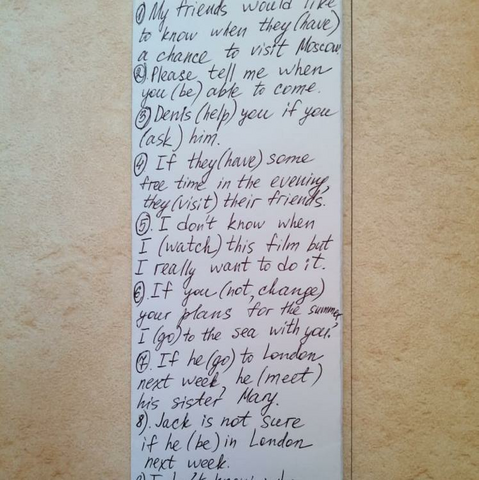 ① My friends would like
to know when they (have)
a chance to visit Moscow.
②. Please tell me when
you (be) able to come.
③ Denis (help) you if you
(ask) him.
④ If they (have) some
free time in the evening,
they (visit) their friends.
⑤. I don't know when
I (watch) this film but
I really want to do it.
⑥. If you (not, change)
your plans for the summer,
I (go) to the sea with you.
⑦. If he (go) to London
next week, he (meet)
his sister Mary.
8). Jack is not sure
if he (be) in London
next week.